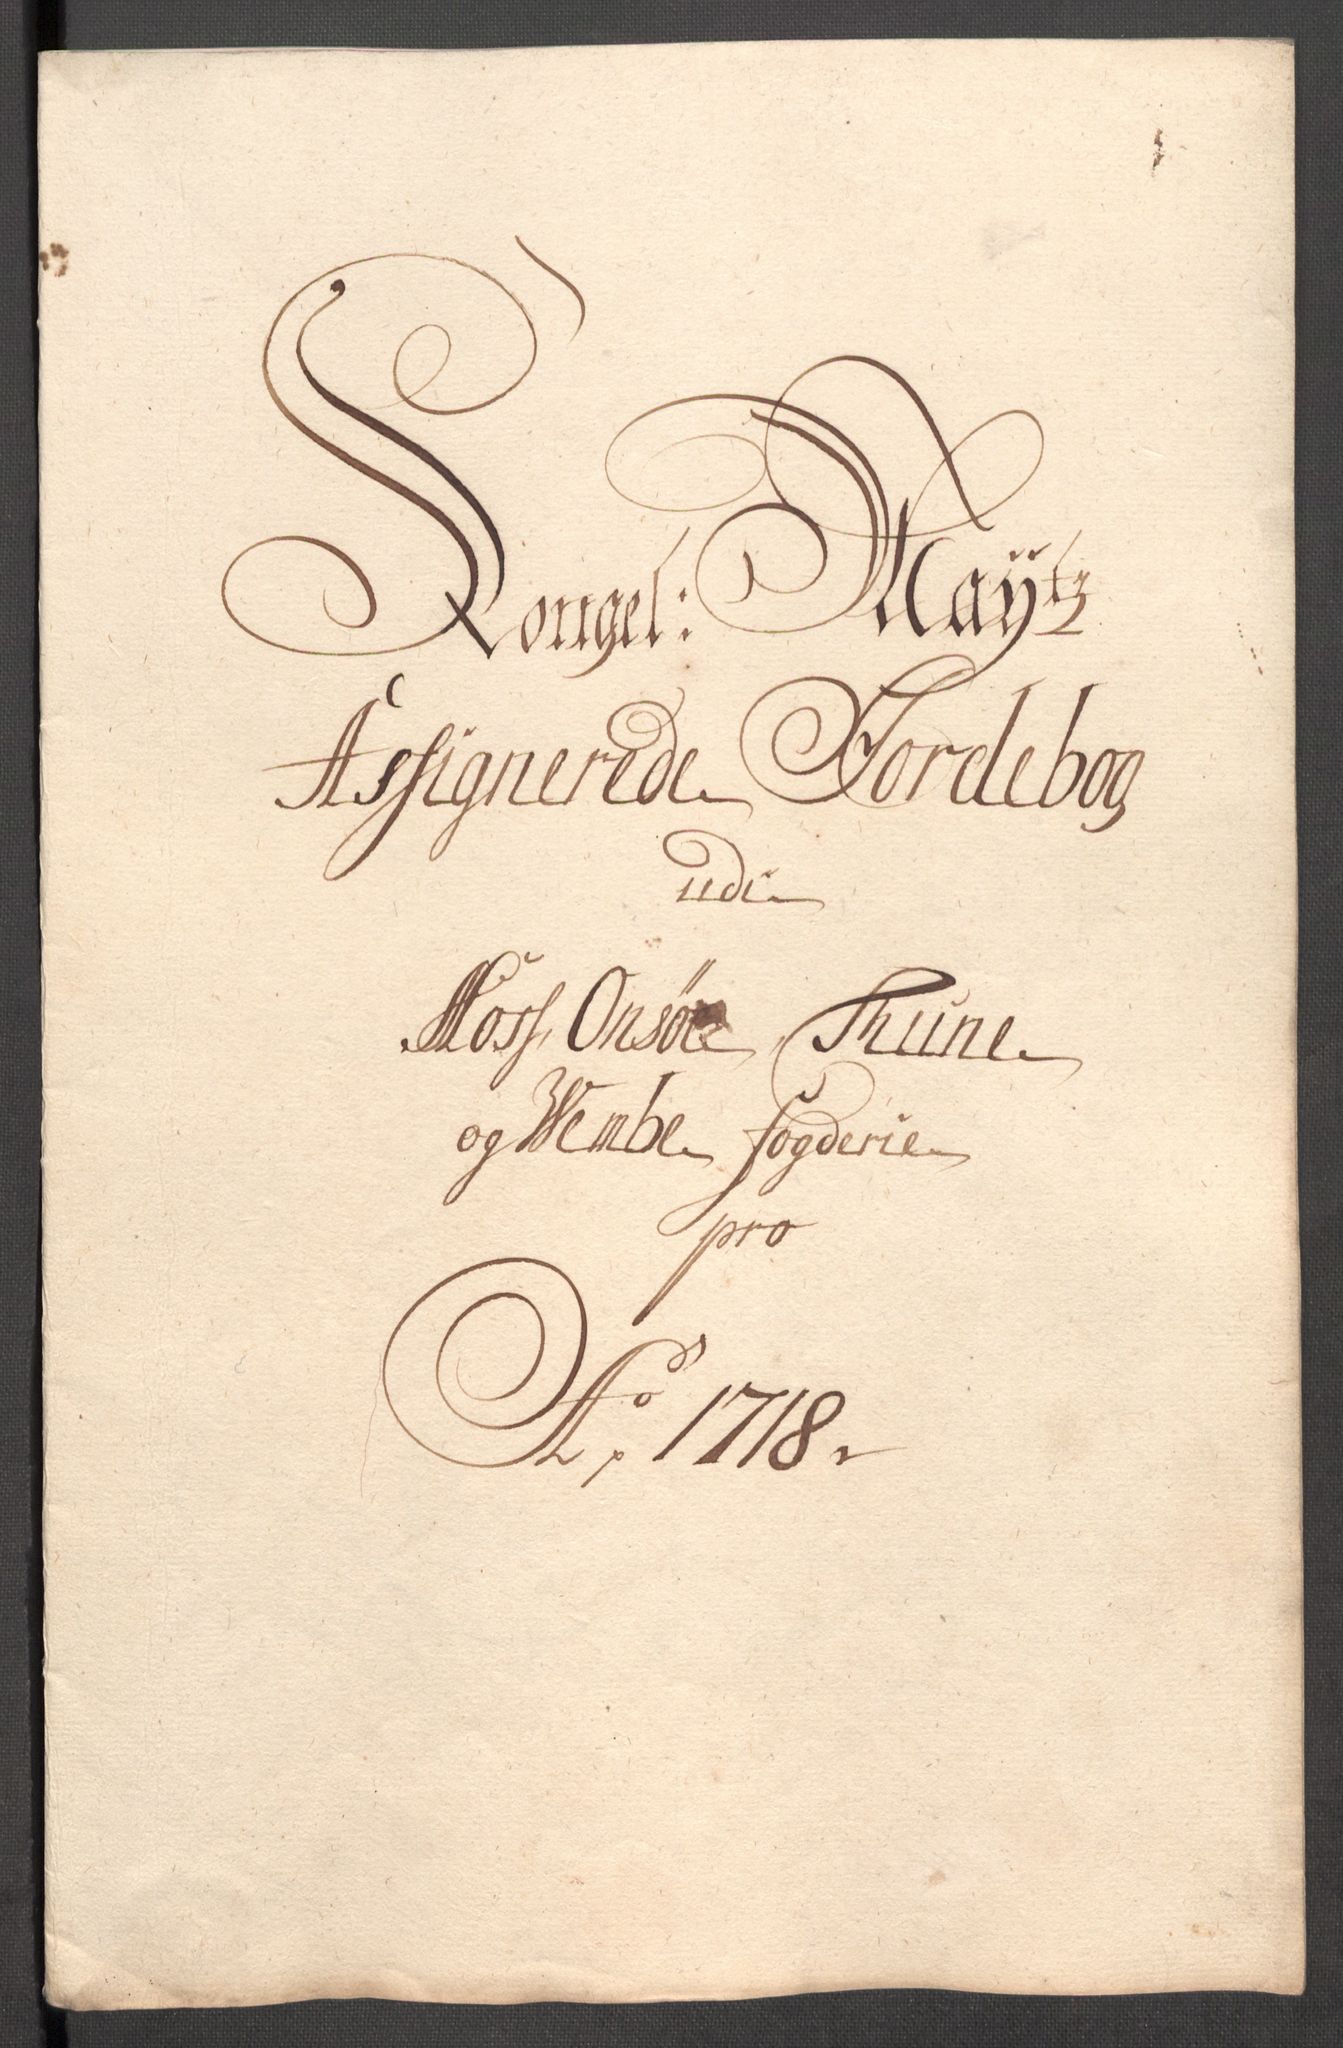 Kongel: Mayts
Assignerede Jordebog
udi
Moss, Onsøe, Thune
og Wembe fogderie
pro
Ao. 1718.